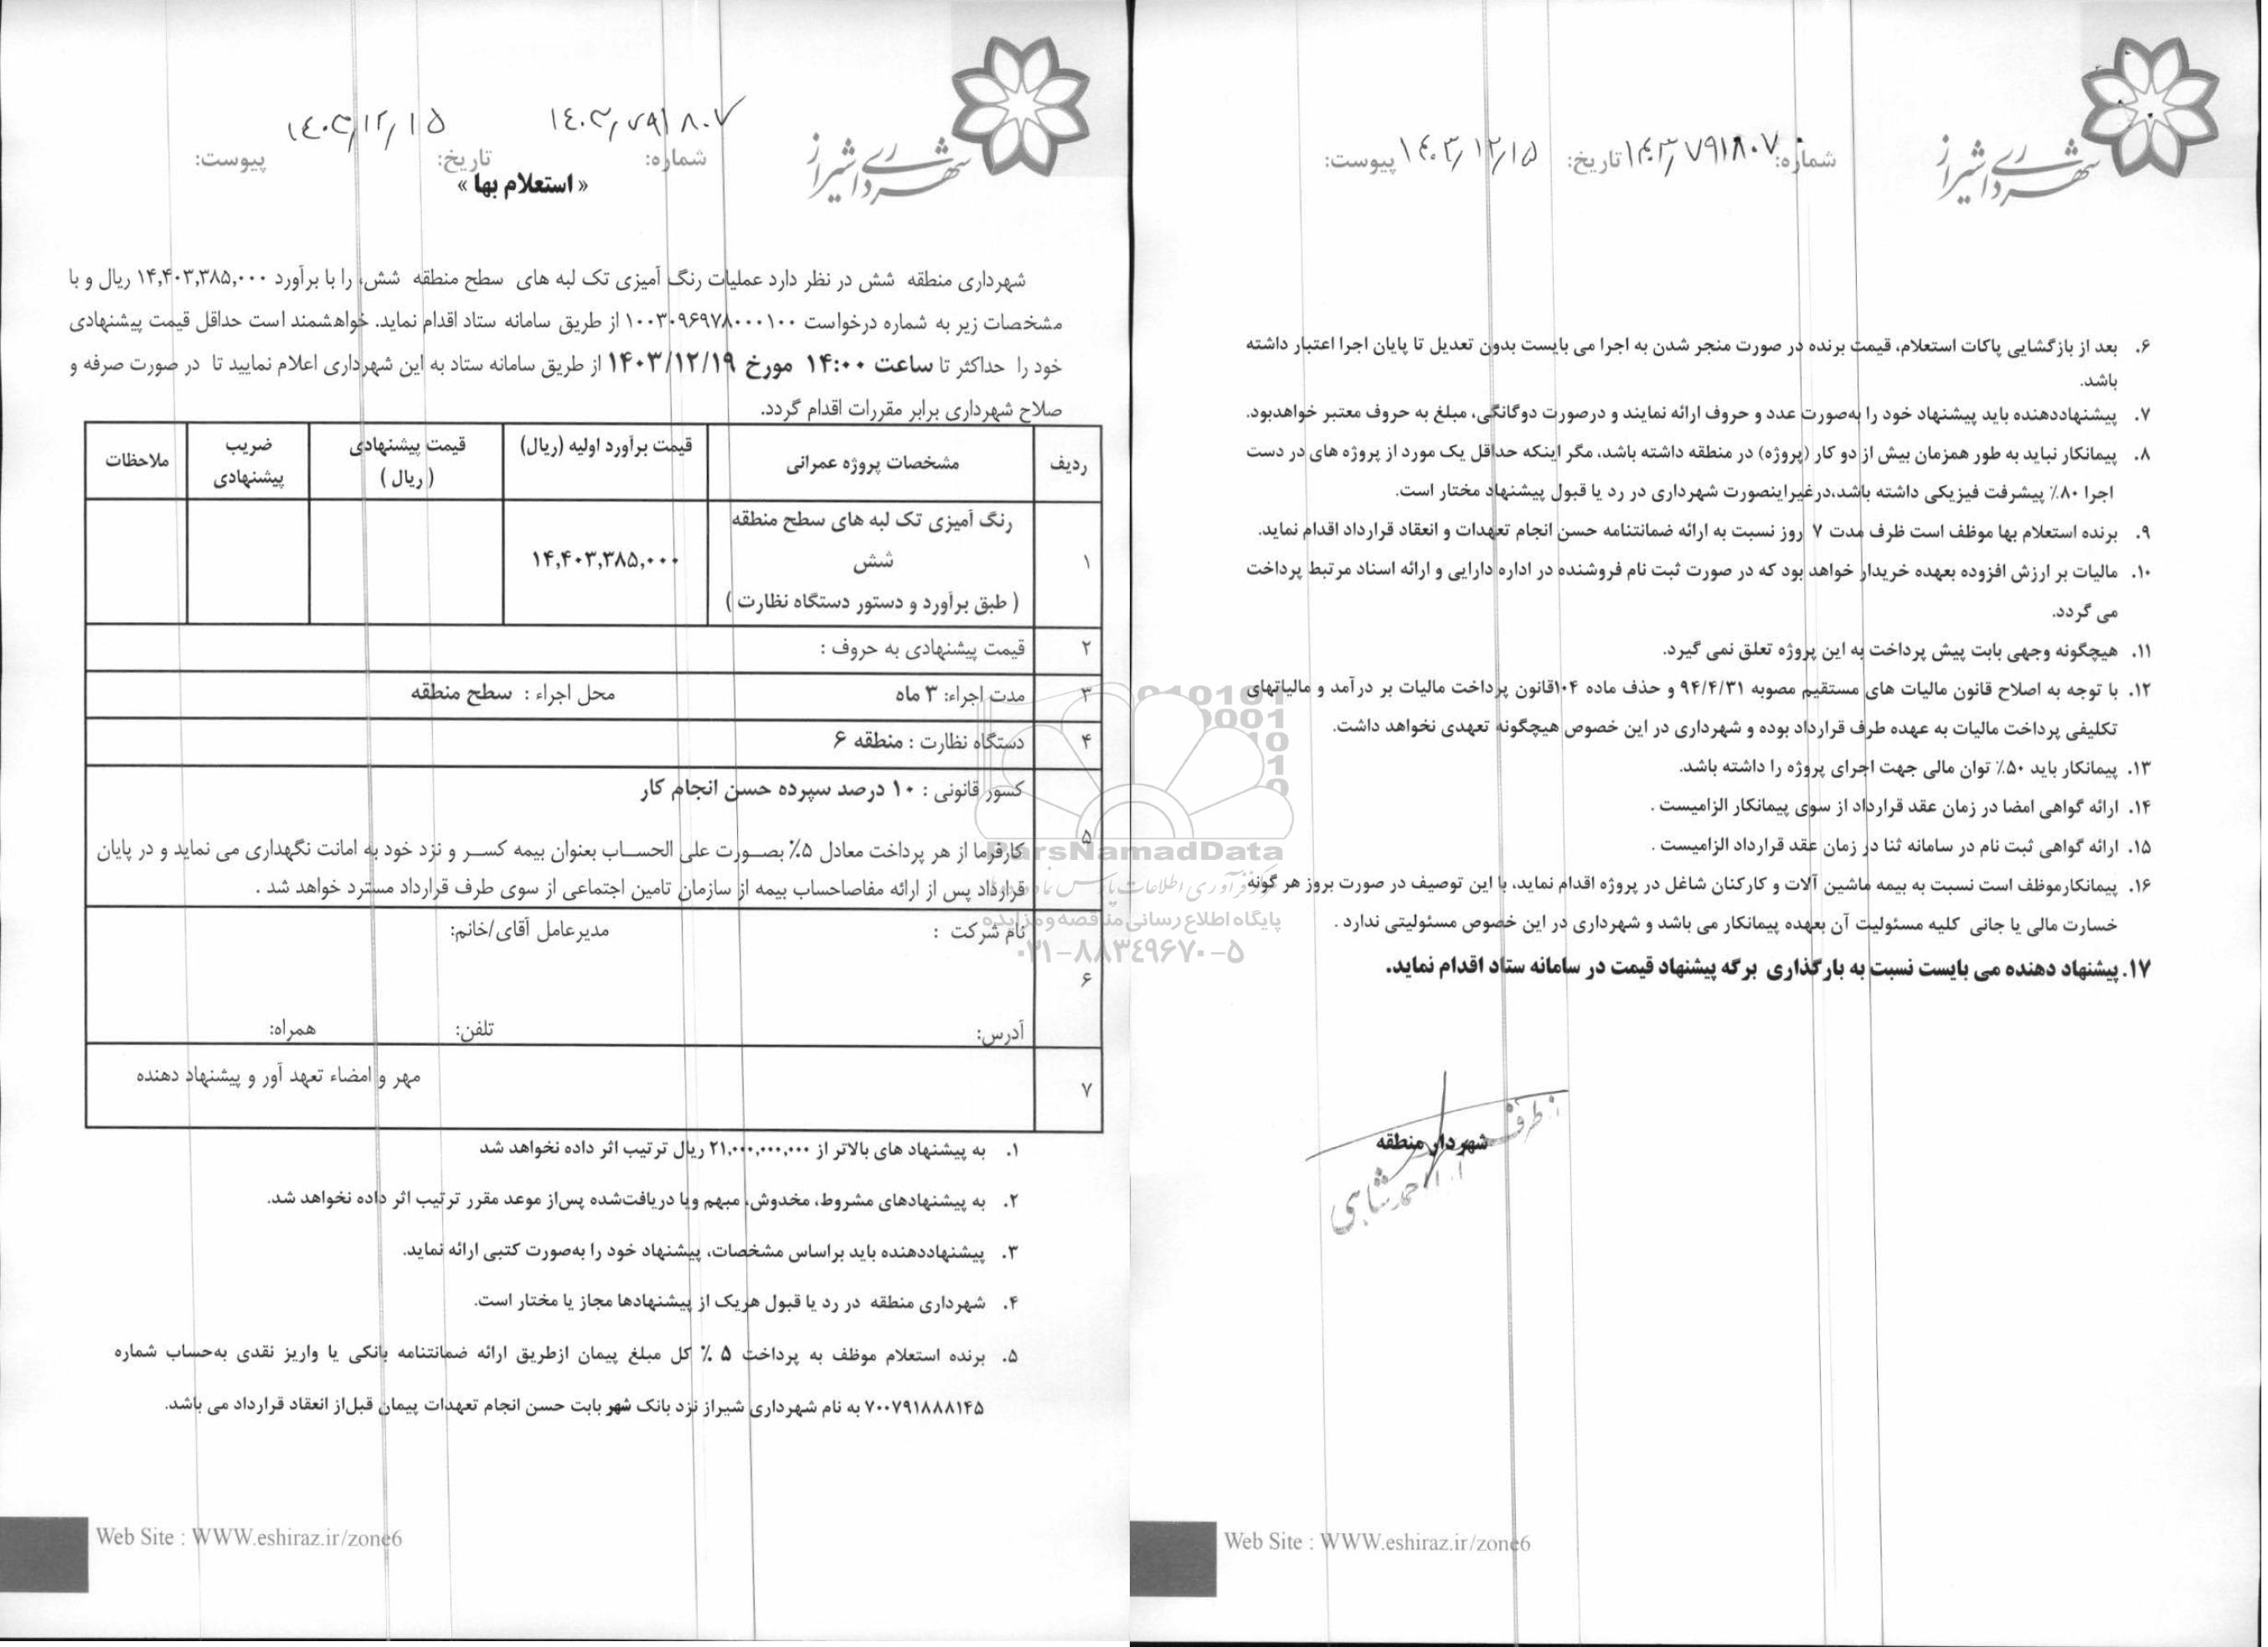 شهرداری شیراز
شماره: ۱۴۰۳/۷۹۱۸۰۷
تاریخ: ۱۴۰۳/۱۲/۱۵
پیوست:
« استعلام بها »
شهرداری منطقه شش در نظر دارد عملیات رنگ آمیزی تک لبه های سطح منطقه شش، را با برآورد ۱۴,۴۰۳,۳۸۵,۰۰۰ ریال و با
مشخصات زیر به شماره درخواست ۱۰۰۳۰۹۶۹۷۸۰۰۰۱۰۰ از طریق سامانه ستاد اقدام نماید. خواهشمند است حداقل قیمت پیشنهادی
خود را حداکثر تا ساعت ۱۴:۰۰ مورخ ۱۴۰۳/۱۲/۱۹ از طریق سامانه ستاد به این شهرداری اعلام نمایید تا در صورت صرفه و
صلاح شهرداری برابر مقررات اقدام گردد.
ردیف مشخصات پروژه عمرانی قیمت برآورد اولیه (ریال) قیمت پیشنهادی (ریال) ضریب پیشنهادی ملاحظات
۱ رنگ آمیزی تک لبه های سطح منطقه
شش ۱۴,۴۰۳,۳۸۵,۰۰۰
( طبق برآورد و دستور دستگاه نظارت )
۲ قیمت پیشنهادی به حروف :
۳ مدت اجراء: ۳ ماه محل اجراء : سطح منطقه
۴ دستگاه نظارت : منطقه ۶
کسور قانونی : ۱۰ درصد سپرده حسن انجام کار
۵ کارفرما از هر پرداخت معادل ۵٪ بصورت علی الحساب بعنوان بیمه کسر و نزد خود به امانت نگهداری می نماید و در پایان
قرارداد پس از ارائه مفاصاحساب بیمه از سازمان تامین اجتماعی از سوی طرف قرارداد مسترد خواهد شد .
نام شرکت : مدیرعامل آقای/خانم:
۶
آدرس: تلفن: همراه:
۷ مهر و امضاء تعهد آور و پیشنهاد دهنده
۱. به پیشنهاد های بالاتر از ۲۱,۰۰۰,۰۰۰,۰۰۰ ریال ترتیب اثر داده نخواهد شد
۲. به پیشنهادهای مشروط، مخدوش، مبهم ویا دریافت‌شده پس‌از موعد مقرر ترتیب اثر داده نخواهد شد.
۳. پیشنهاددهنده باید براساس مشخصات، پیشنهاد خود را به‌صورت کتبی ارائه نماید.
۴. شهرداری منطقه در رد یا قبول هریک از پیشنهادها مجاز یا مختار است.
۵. برنده استعلام موظف به پرداخت ۵ ٪ کل مبلغ پیمان ازطریق ارائه ضمانتنامه بانکی یا واریز نقدی به‌حساب شماره
۷۰۰۷۹۱۸۸۸۱۴۵ به نام شهرداری شیراز نزد بانک شهر بابت حسن انجام تعهدات پیمان قبل‌از انعقاد قرارداد می باشد.
Web Site : WWW.eshiraz.ir/zone6
شهرداری شیراز
شماره: ۱۴۰۳/۷۹۱۸۰۷ تاریخ: ۱۴۰۳/۱۲/۱۵ پیوست:
۶. بعد از بازگشایی پاکات استعلام، قیمت برنده در صورت منجر شدن به اجرا می بایست بدون تعدیل تا پایان اجرا اعتبار داشته
باشد.
۷. پیشنهاددهنده باید پیشنهاد خود را به‌صورت عدد و حروف ارائه نمایند و درصورت دوگانگی، مبلغ به حروف معتبر خواهدبود.
۸. پیمانکار نباید به طور همزمان بیش از دو کار (پروژه) در منطقه داشته باشد، مگر اینکه حداقل یک مورد از پروژه های در دست
اجرا ۸۰٪ پیشرفت فیزیکی داشته باشد،درغیراینصورت شهرداری در رد یا قبول پیشنهاد مختار است.
۹. برنده استعلام بها موظف است ظرف مدت ۷ روز نسبت به ارائه ضمانتنامه حسن انجام تعهدات و انعقاد قرارداد اقدام نماید.
۱۰. مالیات بر ارزش افزوده بعهده خریدار خواهد بود که در صورت ثبت نام فروشنده در اداره دارایی و ارائه اسناد مرتبط پرداخت
می گردد.
۱۱. هیچگونه وجهی بابت پیش پرداخت به این پروژه تعلق نمی گیرد.
۱۲. با توجه به اصلاح قانون مالیات های مستقیم مصوبه ۹۴/۴/۳۱ و حذف ماده ۱۰۴قانون پرداخت مالیات بر درآمد و مالیاتهای
تکلیفی پرداخت مالیات به عهده طرف قرارداد بوده و شهرداری در این خصوص هیچگونه تعهدی نخواهد داشت.
۱۳. پیمانکار باید ۵۰٪ توان مالی جهت اجرای پروژه را داشته باشد.
۱۴. ارائه گواهی امضا در زمان عقد قرارداد از سوی پیمانکار الزامیست .
۱۵. ارائه گواهی ثبت نام در سامانه ثنا در زمان عقد قرارداد الزامیست .
۱۶. پیمانکارموظف است نسبت به بیمه ماشین آلات و کارکنان شاغل در پروژه اقدام نماید، با این توصیف در صورت بروز هر گونه
خسارت مالی یا جانی کلیه مسئولیت آن بعهده پیمانکار می باشد و شهرداری در این خصوص مسئولیتی ندارد .
۱۷. پیشنهاد دهنده می بایست نسبت به بارگذاری برگه پیشنهاد قیمت در سامانه ستاد اقدام نماید.
از طرف
شهردار منطقه
Web Site : WWW.eshiraz.ir/zone6
ParsNamadData
پایگاه اطلاع رسانی مناقصه و مزایده
۰۲۱-۸۸۳۴۹۶۷۰-۵